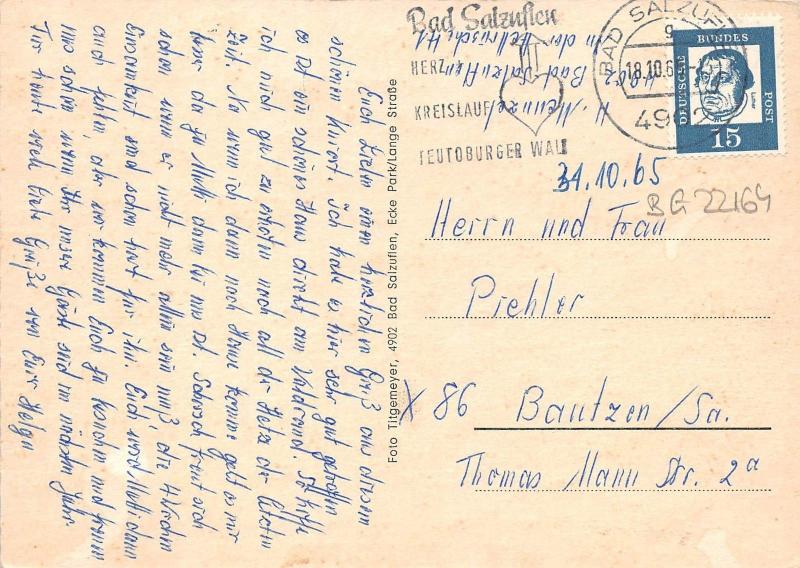 Bad Salzuflen
HERZ +
KREISLAUF
TEUTOBURGER WALD
BAD SALZUFLEN
g
18.10.6
4902
DEUTSCHE BUNDES POST
15
H. Meinzel
4902 Bad Salzuflen
in der
31.10.65
BG 22164
Herrn und Frau
Piehler
X 86 Bautzen/Sa.
Thomas Mann Str. 2a
Foto Titgemeyer, 4902 Bad Salzuflen, Ecke Park/Lange Straße
Euch Lieben einen herzlichen Gruß aus diesem
schönen Kurort. Ich habe es hier sehr gut getroffen
es ist ein schönes Haus direkt am Waldrand. Ich hoffe
ich mich gut zu erholen nach all der Hetze der letzten
Zeit. Na wenn ich dann nach Hause komme geht es mir
besser da ja Mutti dann bei uns ist. Schorsch freut sich
schon wenn er nicht mehr allein sein muß, die 4 Wochen
Einsamkeit sind schon hart für ihn. Euch wird Mutti dann
auch fehlen, aber wir kommen Euch ja besuchen und freuen
uns schon wenn Ihr unsere Gäste seid im nächsten Jahr.
Für heute recht liebe Grüße von Eurer Helga